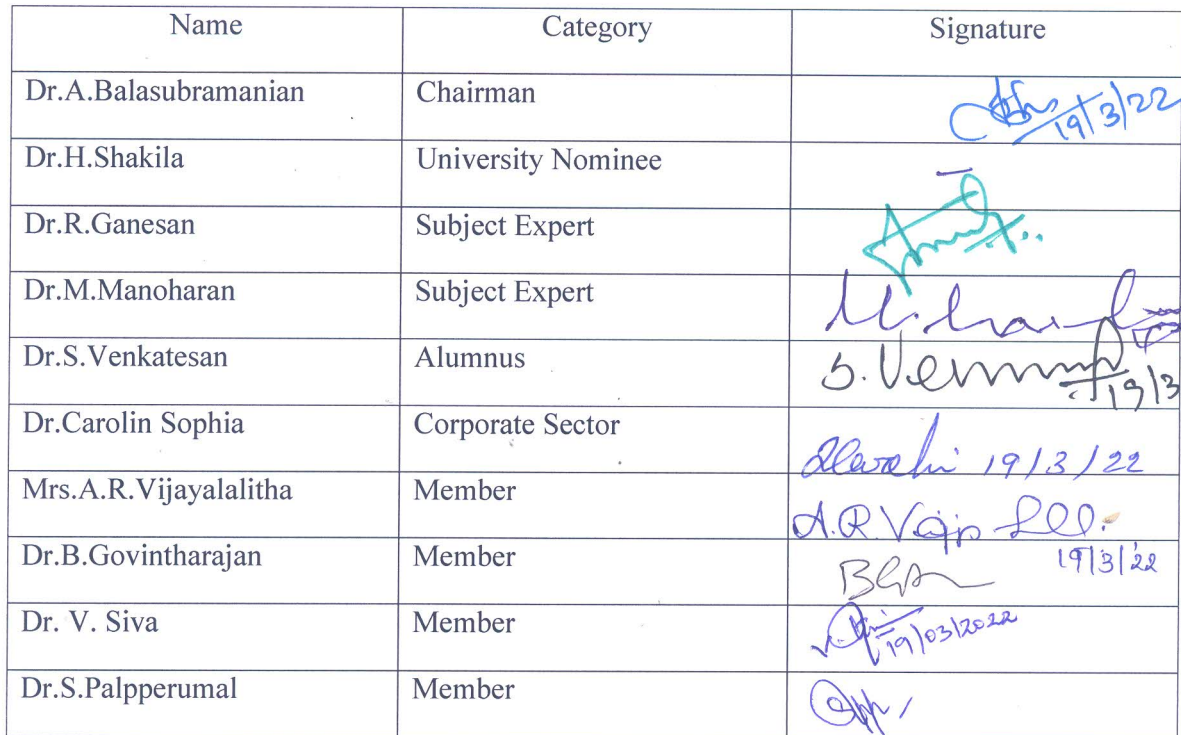 Name Category Signature
Dr.A.Balasubramanian Chairman 19/3/22
Dr.H.Shakila University Nominee –
Dr.R.Ganesan Subject Expert
Dr.M.Manoharan Subject Expert
Dr.S.Venkatesan Alumnus S. 19/3
Dr.Carolin Sophia Corporate Sector 19/3/22
Mrs.A.R.Vijayalalitha Member A.R.
19/3/22
Dr.B.Govintharajan Member
Dr. V. Siva Member 19/03/2022
Dr.S.Palpperumal Member